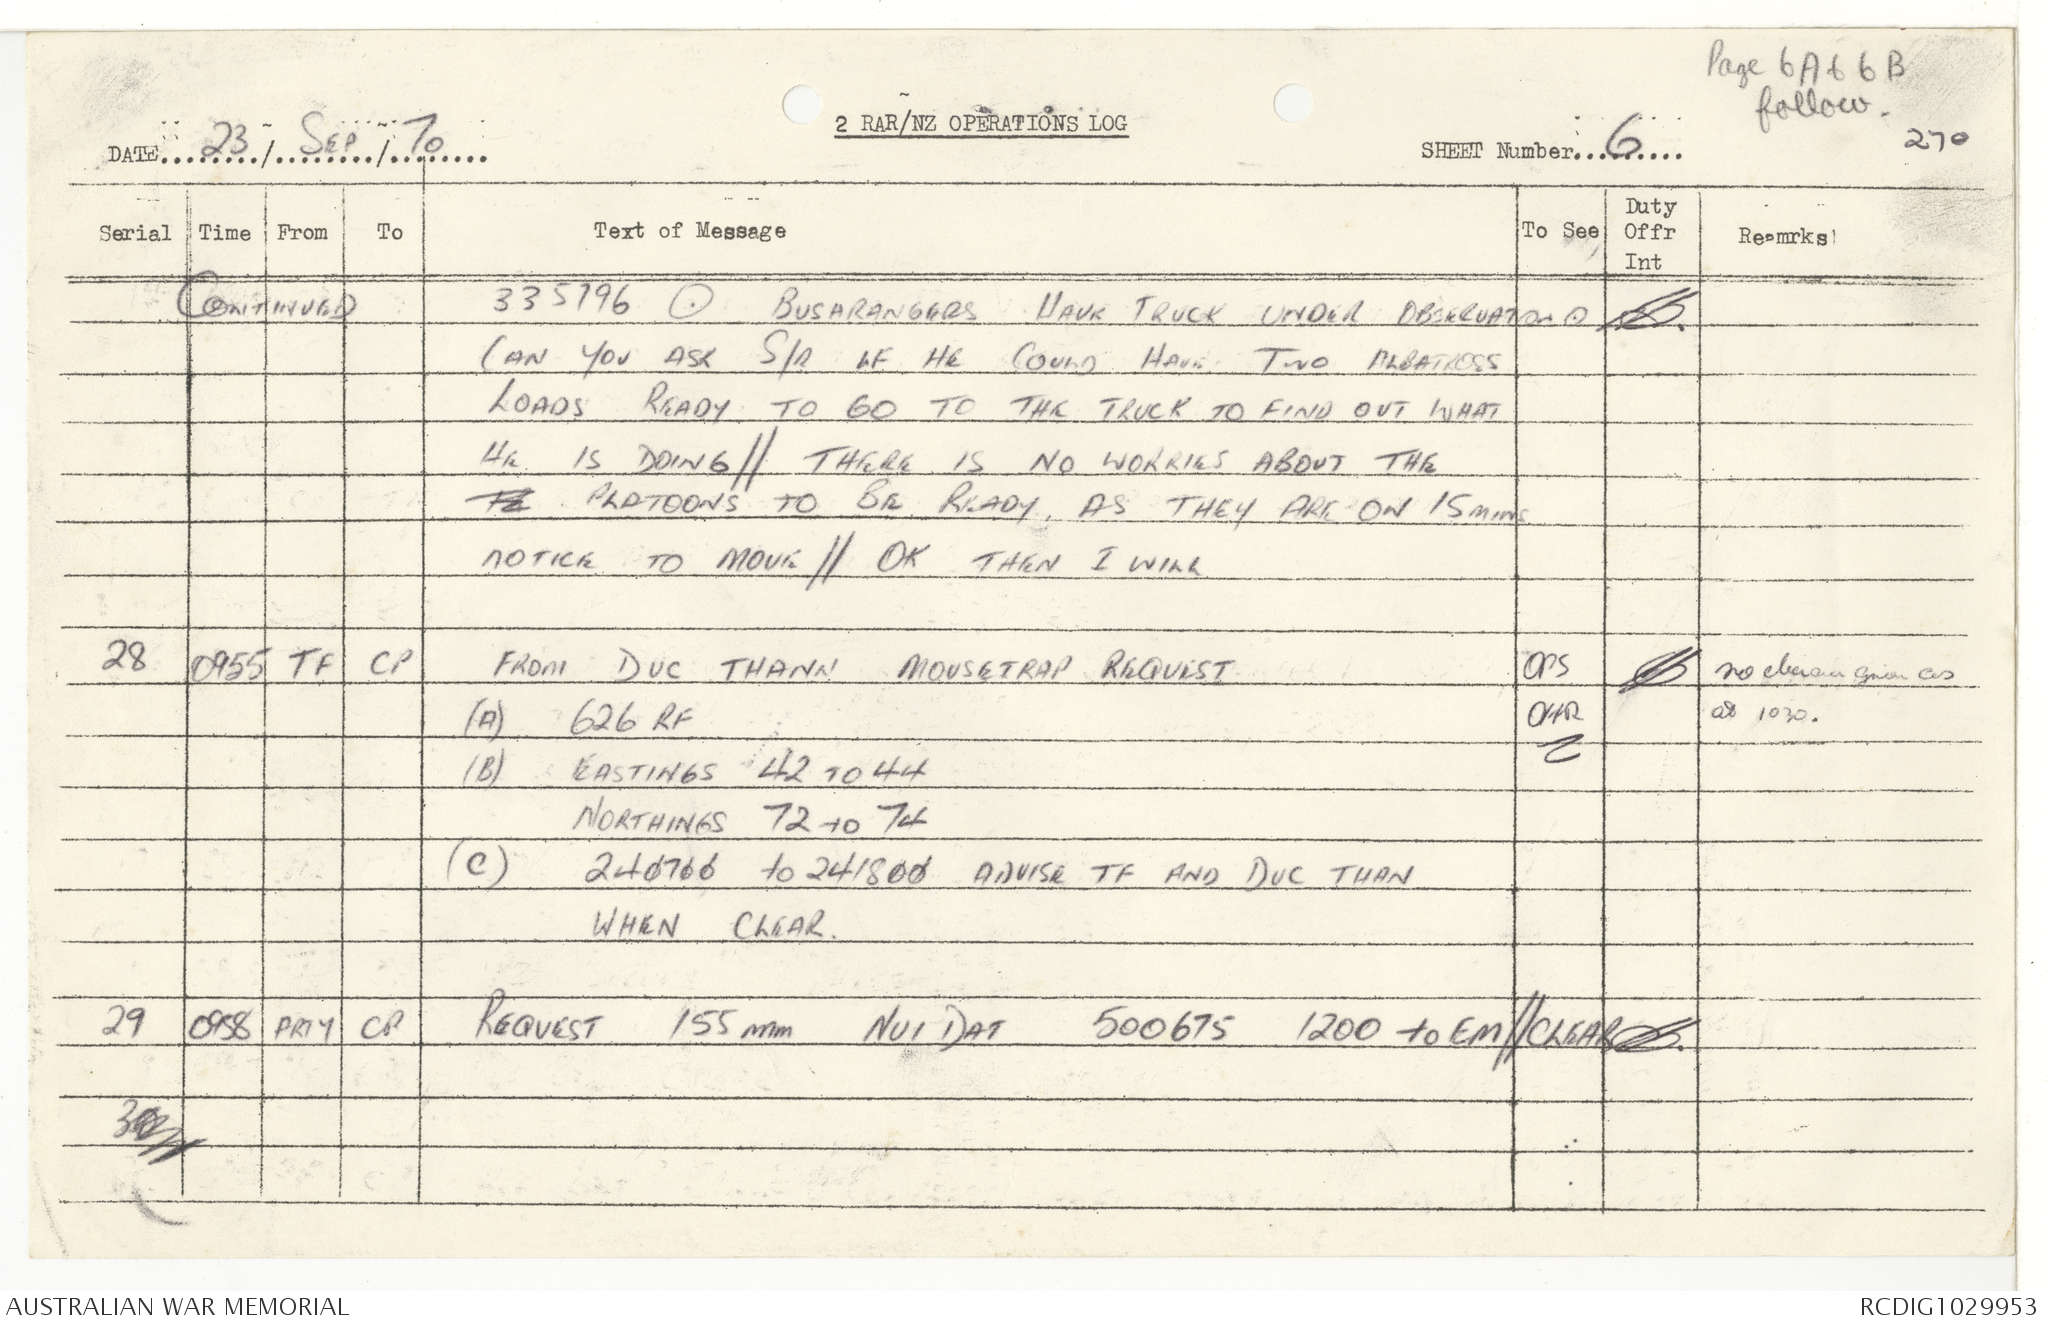 Page 6A & 6B
follow.
270
2 RAR/NZ OPERATIONS LOG
DATE 23 / SEP / 70
SHEET Number 6
Serial Time From To Text of Message To See Duty Offr Int Remrks
CONTINUED 335796 ⊙ BUSARANGERS HAVE TRUCK UNDER OBSERVATION ⊙
CAN YOU ASK S/R IF HE COULD HAVE TWO ALBATROSS
LOADS READY TO GO TO THE TRUCK TO FIND OUT WHAT
HE IS DOING// THERE IS NO WORRIES ABOUT THE
PLATOONS TO BE READY, AS THEY ARE ON 15 MINS
NOTICE TO MOVE// OK THEN I WILL
28 0955 TF CP FROM DUC THANN MOUSETRAP REQUEST OPS no given as
(A) 626 RF at 1030.
(B) EASTINGS 42 TO 44
NORTHINGS 72 to 74
(C) 240700 to 241800 ADVISE TF AND DUC THAN
WHEN CLEAR.
29 0958 ARTY CP REQUEST 155 mm NUI DAT 500675 1200 to EM//CLEAR
AUSTRALIAN WAR MEMORIAL
RCDIG1029953